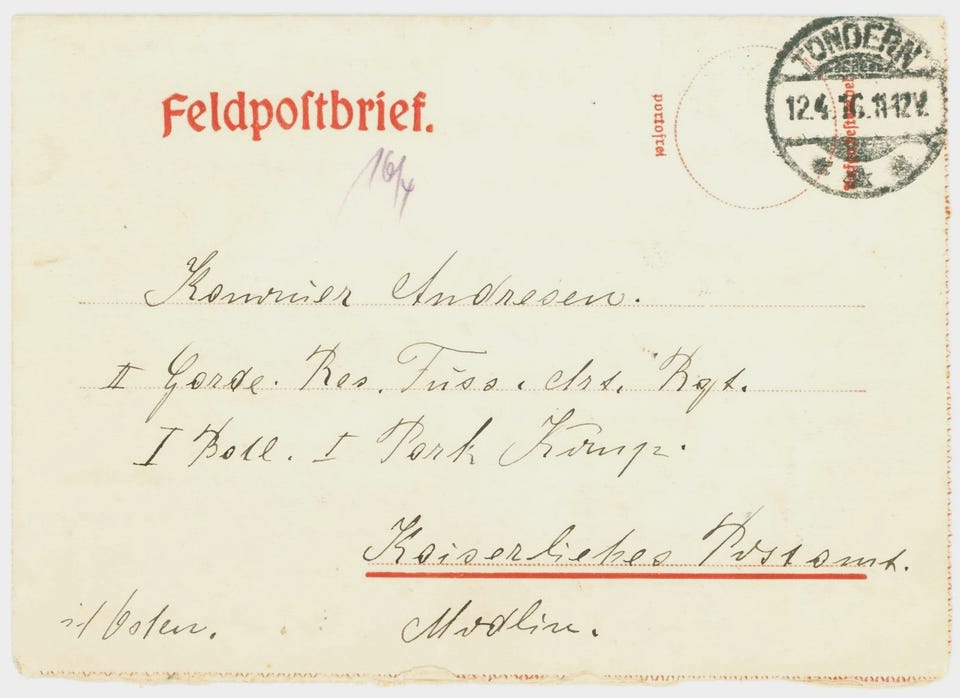 TONDERN
12.4.16.11-12V.
Feldpostbrief.
portofrei
16/4
Kanonier Andresen.
II Garde. Res. Fuss. Art. Rgt.
I Batl. I Park Komp.
Kaiserliches Postamt.
Modlin.
Osten.